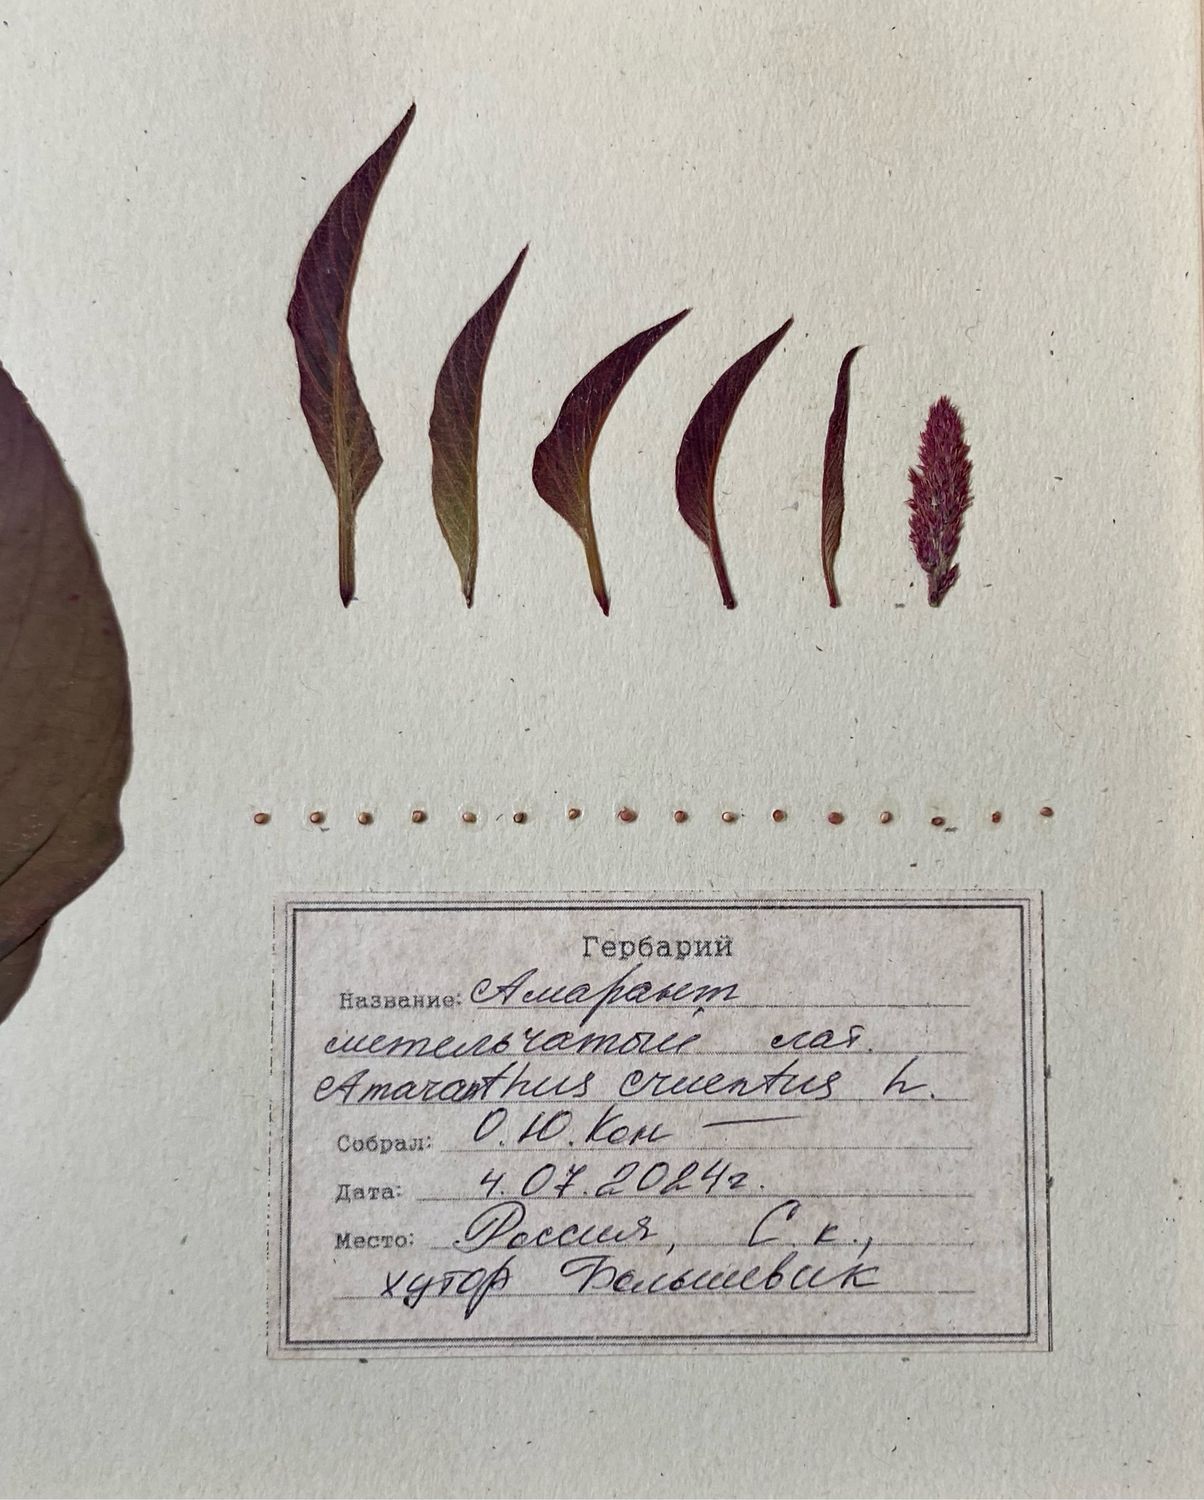 Гербарий
Название: Амарант
метельчатый лат.
Amaranthus cruentus L.
Собрал: О.Ю. Кон —
Дата: 4.07.2024г.
Место: Россия, С.к.,
хутор Большевик